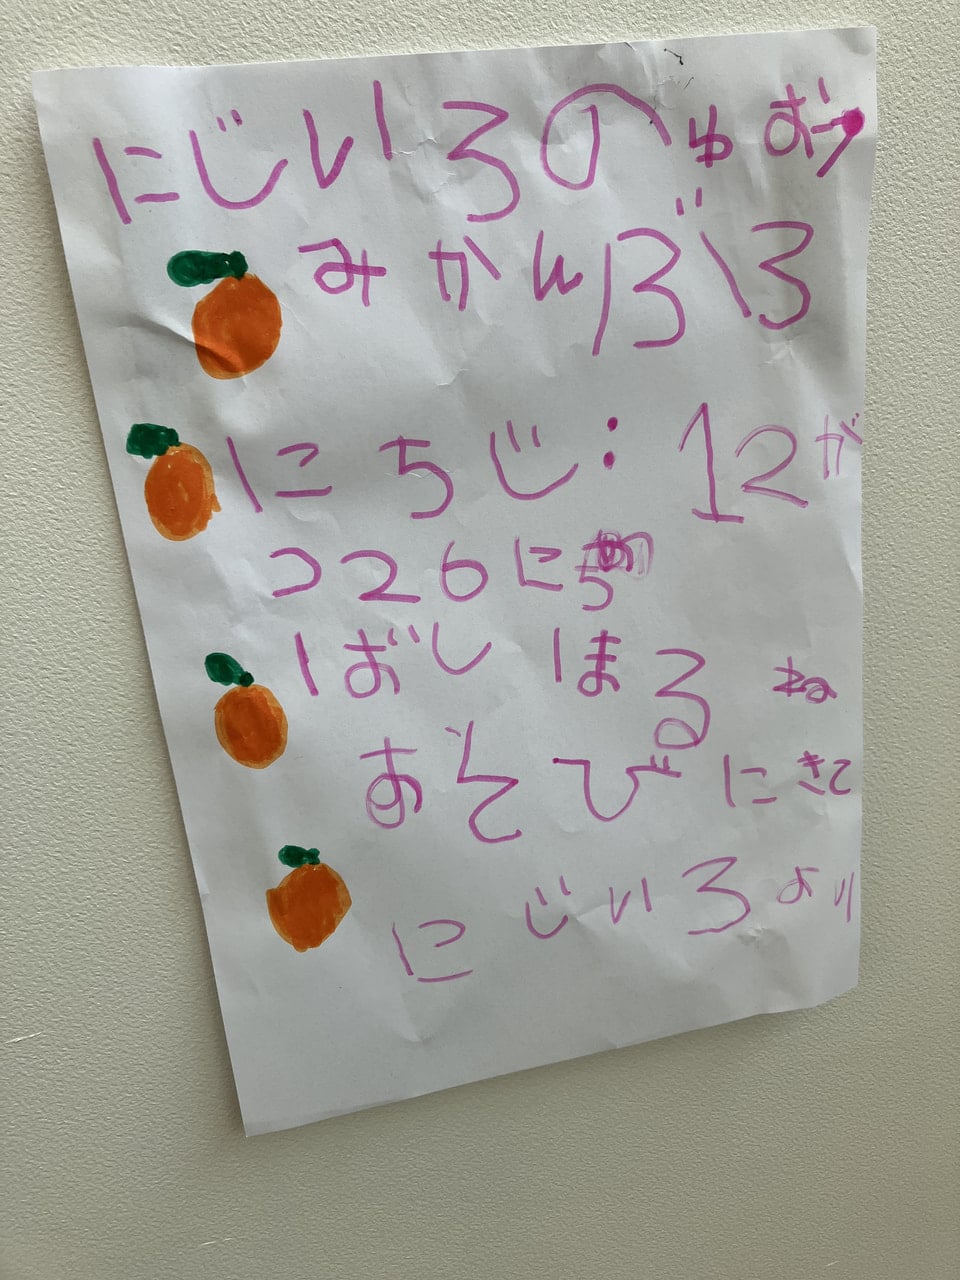 にじいろのゆ
みかんぶろ
にちじ:12が
つ26にち
ばし ほるね
あそびにきて
にじいろより